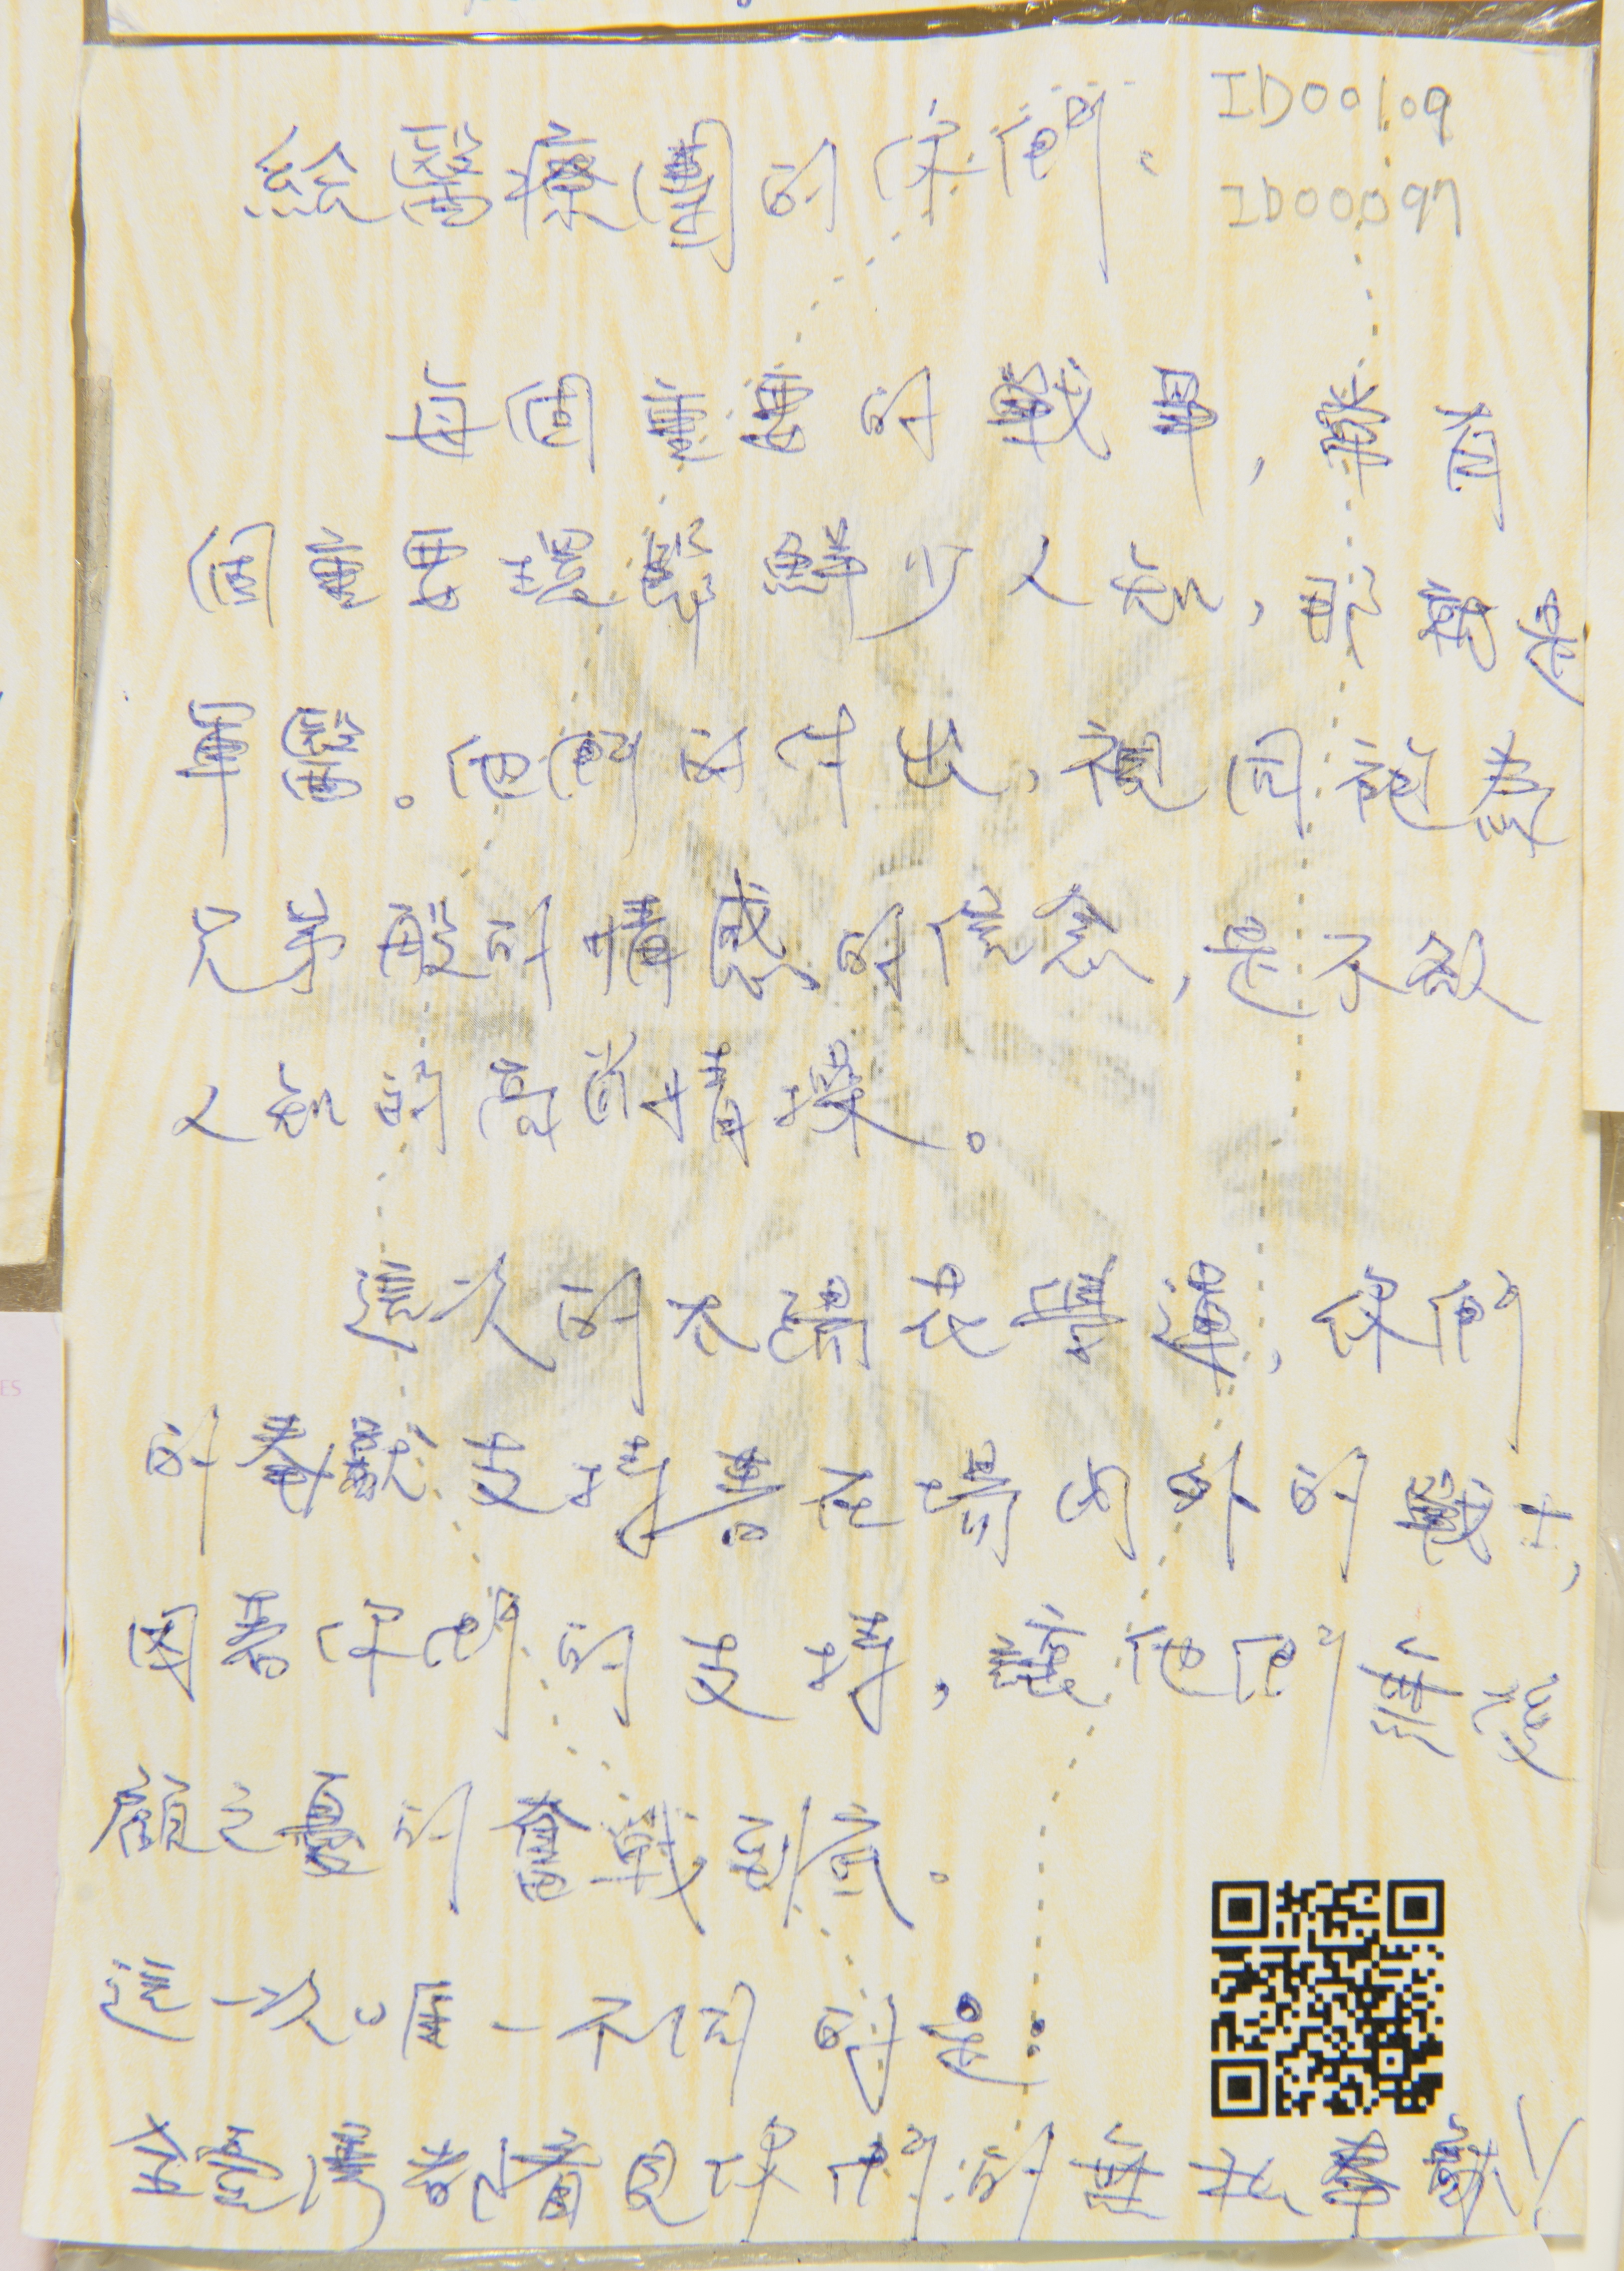 給醫療團的你們。
ID00109
ID00097
每個重要的戰畢，常有
個重要環節鮮少人知，那就是
軍醫。他們的付出，視同袍為
兄弟般的情感的信念，是不欲
人知的高尚情操。
這次的太陽花學運，你們
的奉獻支持著在場內外的戰士，
因著你們的支持，讓他們無後
顧之憂的奮戰到底。
這一次。唯一不同的是：
全臺灣都看見你們的無私奉獻！
ES